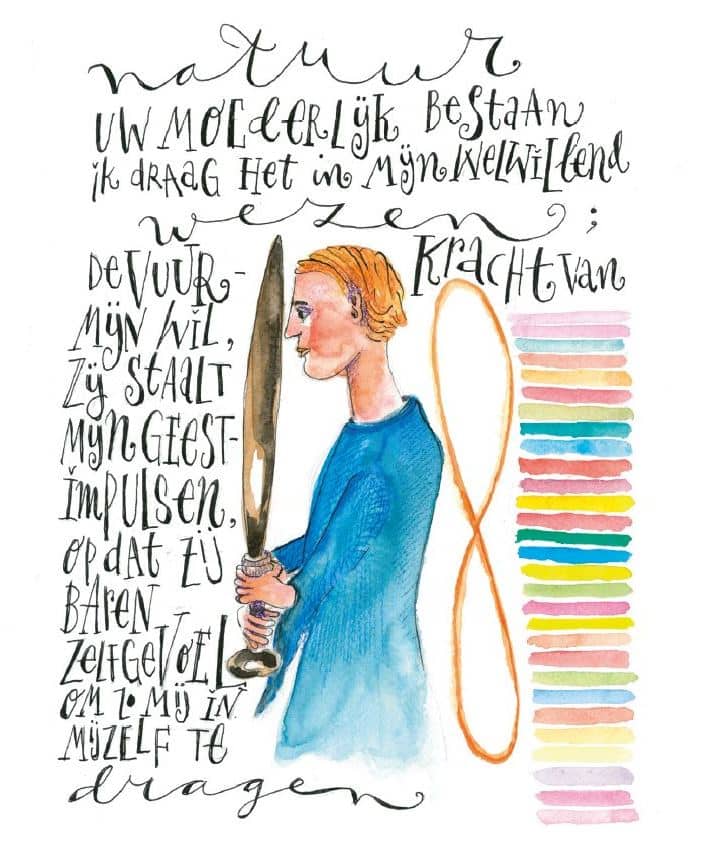 natuur
UW MOEDERLIJK BESTAAN
ik DRAAG HET in MIJN WELWILLEND
wezen ;
DE VUUR-
KRACHT VAN
MIJN WIL,
ZIJ STAALT
MIJN GEEST-
IMPULSEN,
OPDAT ZIJ
BAREN
ZELFGEVOEL
OM ZO MIJ IN
MIJZELF TE
dragen